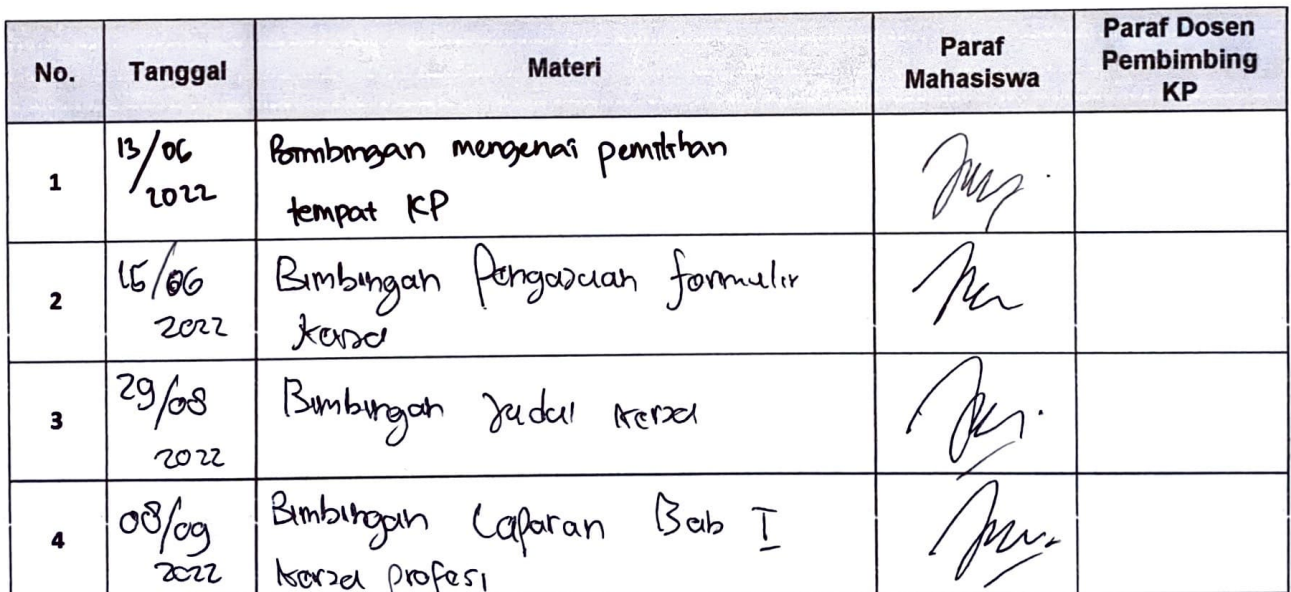 No. Tanggal Materi Paraf Mahasiswa Paraf Dosen Pembimbing KP
1 13/06 2022 Bimbingan mengenai pemilihan
tempat KP
2 15/06 2022 Bimbingan Pengajuan formulir
kerja
3 29/08 2022 Bimbingan Judul kerja
4 08/09 2022 Bimbingan Laporan Bab I
kerja profesi